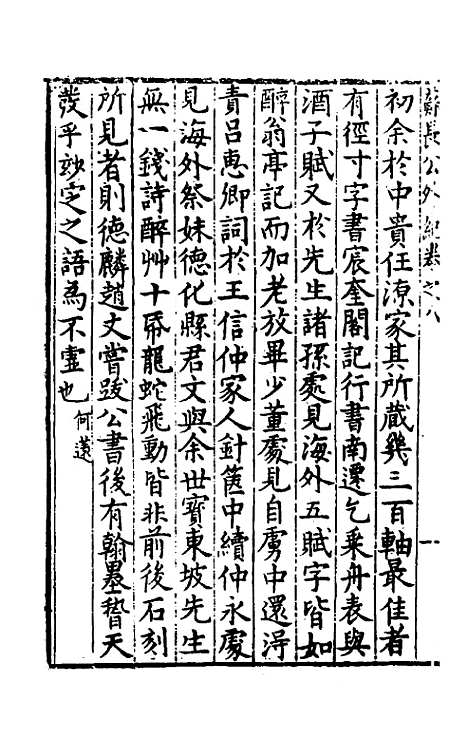 蘇長公外紀卷之八
一
初余於中貴任源家其所蔵幾三百軸最佳者
有徑寸字書宸奎閣記行書南遷乞乗舟表與
酒子賦又於先生諸孫處見海外五賦字皆如
醉翁亭記而加老放畢少董處見自虜中還淂
責吕惠卿詞於王信仲家人針篋中續仲永處
見海外祭妹德化縣君文與余世寳東坡先生
無一錢詩醉艸十帋龍蛇飛動皆非前後石刻
所見者則德麟趙丈嘗跋公書後有翰墨瞽天
發乎玅定之語為不虛也 何薳